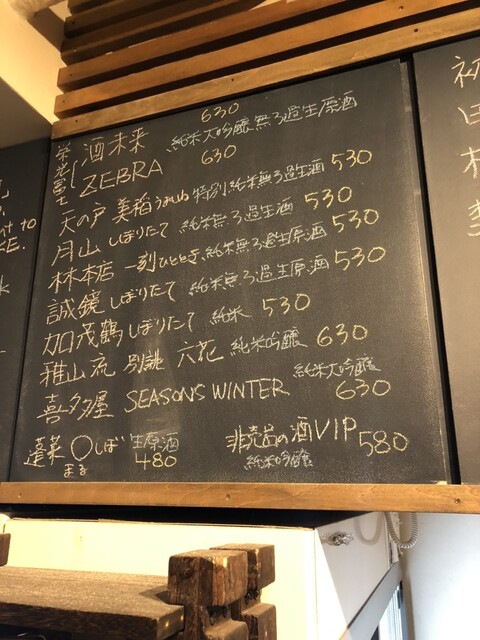 630
栄光冨士 酒未来 純米大吟醸無ろ過生原酒
ZEBRA 630
天の戸 美稲 うましね 特別純米無ろ過生酒 530
月山 しぼりたて 純米無ろ過生酒 530
林本店 一刻ひととき 純米無ろ過生原酒 530
誠鏡 しぼりたて 純米無ろ過生原酒 530
加茂鶴 しぼりたて 純米 530
雅山流 別誂 六花 純米吟醸 630
喜多屋 SEASONS WINTER 純米大吟醸 630
蓬莱 〇しぼ 生原酒 480
まる
非売品の酒VIP 580
純米吟醸
初